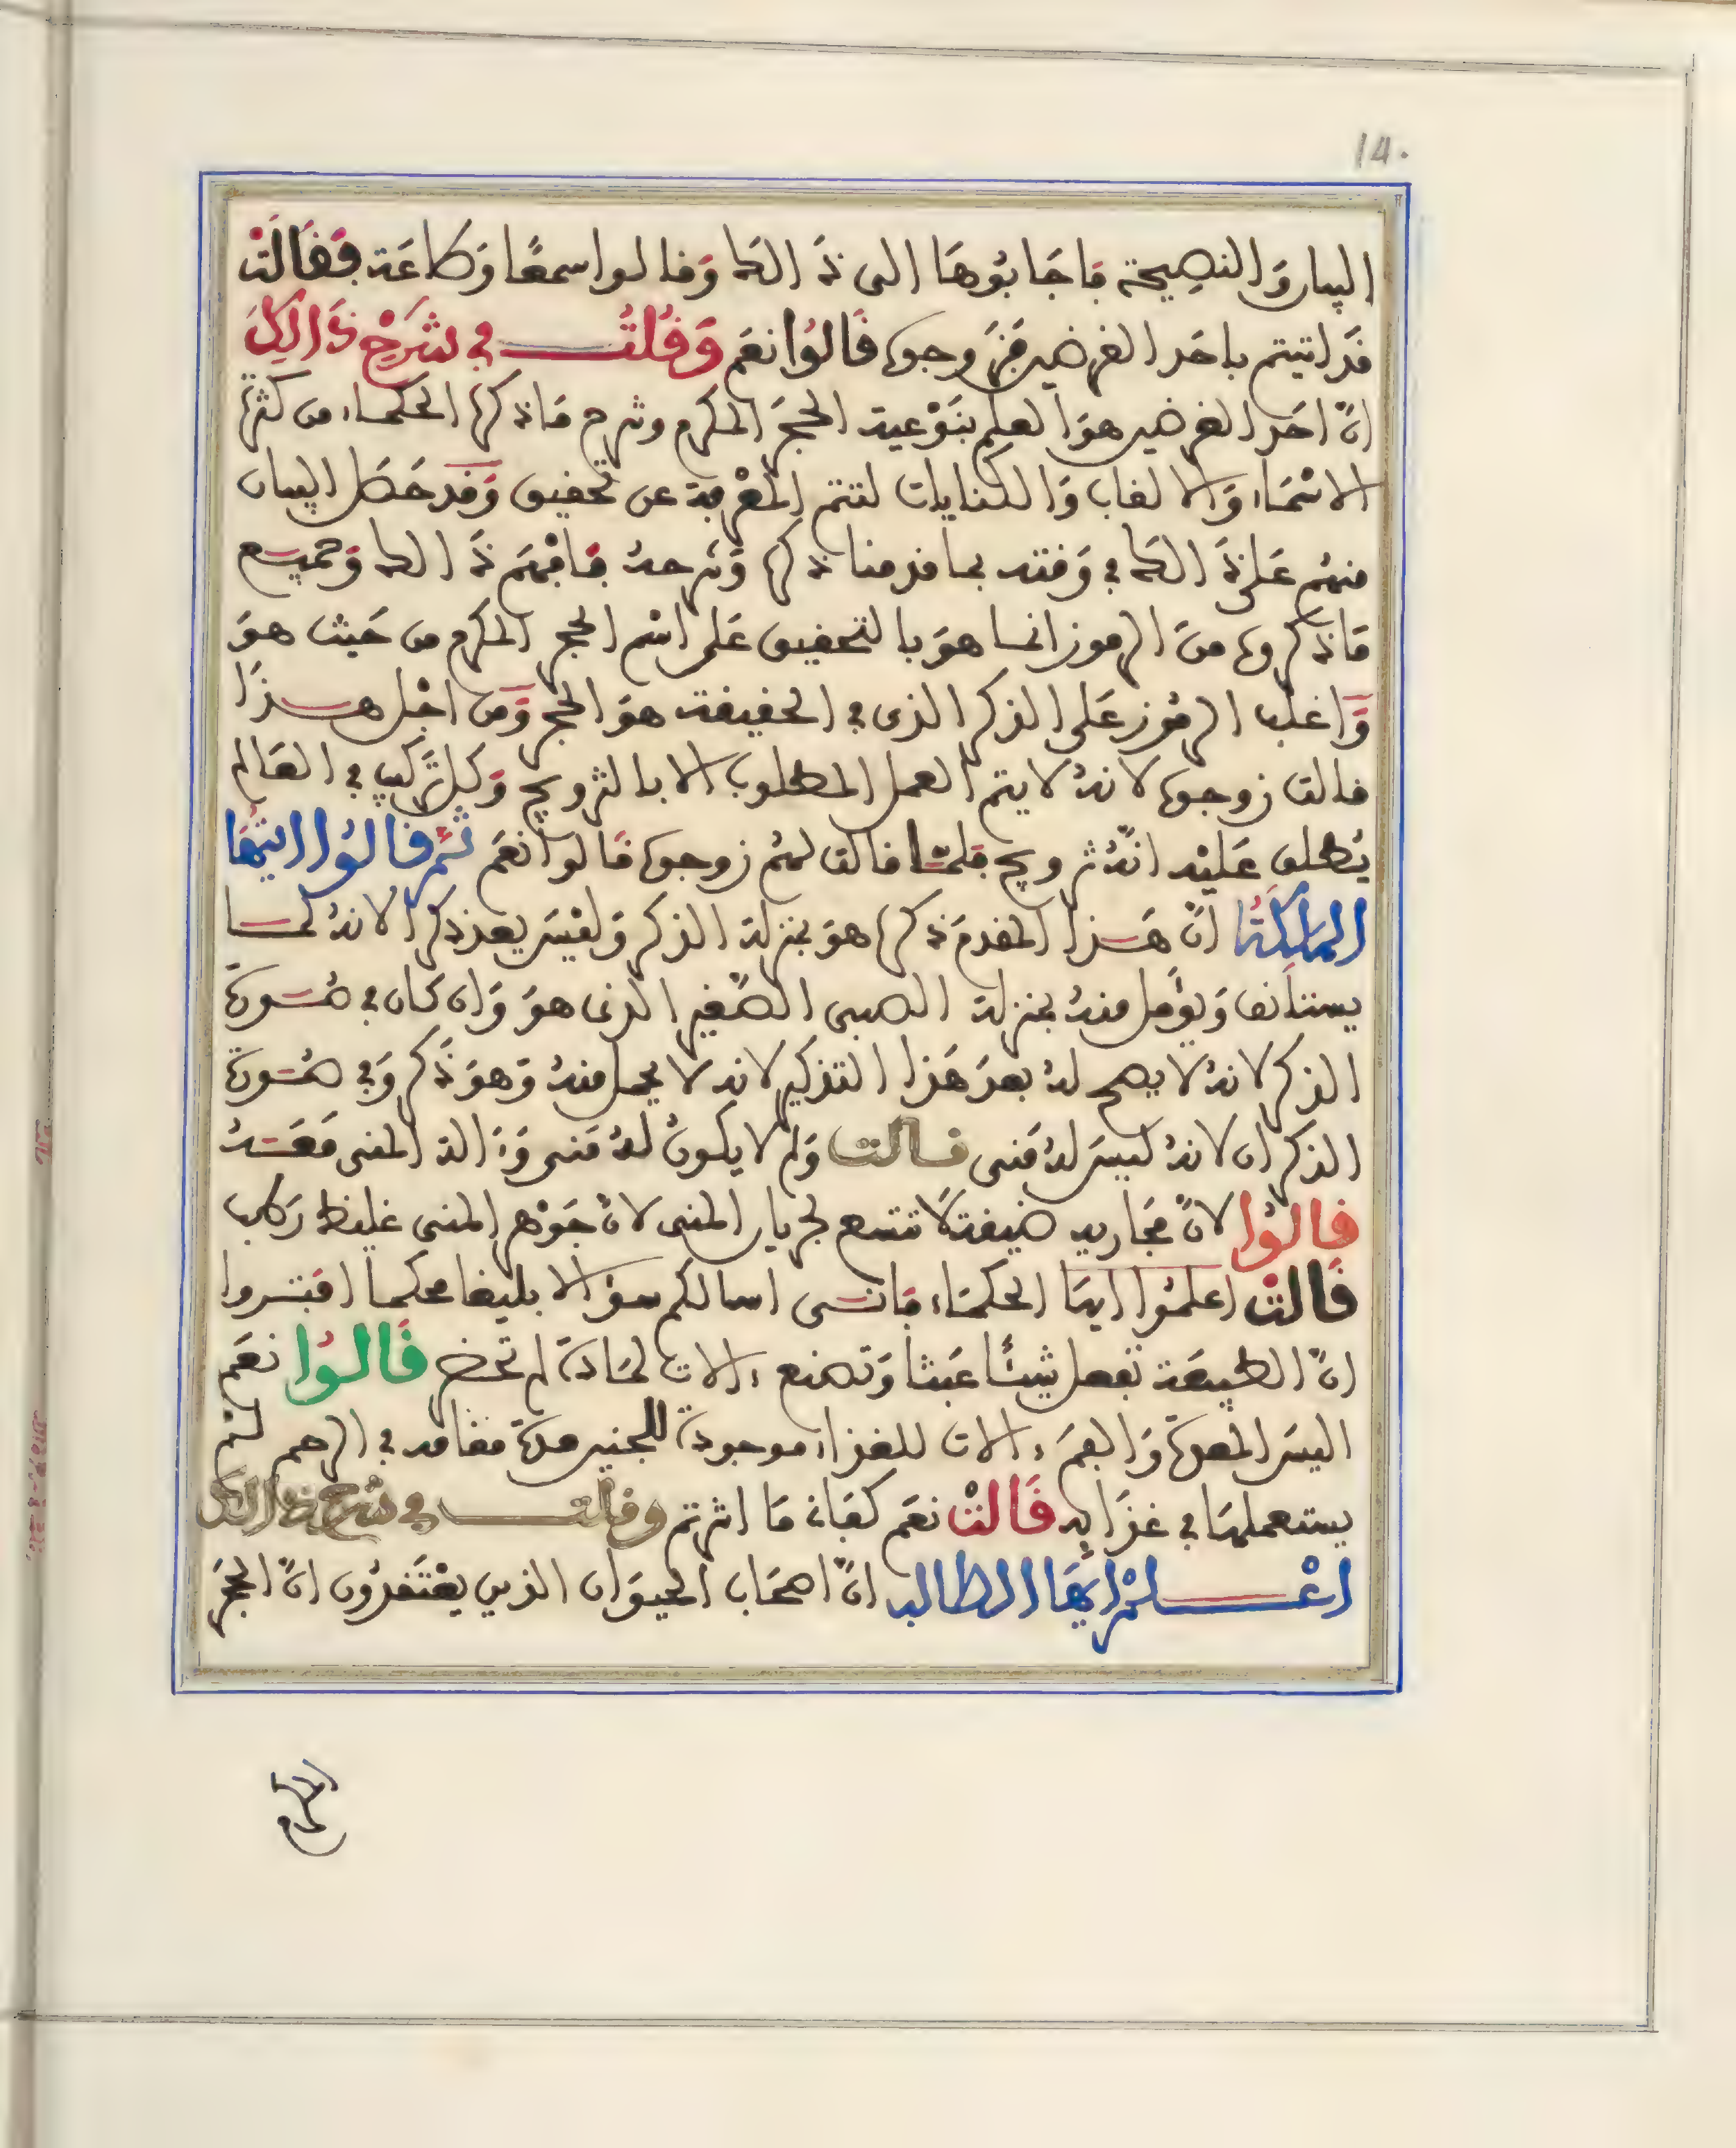 14.
البيان والنصيحة فاجابوها الى ذالك وقالوا سمعًا وطاعة فقالت
قد اتيتم باحد الغرضين فزوجوه قالوا نعم وقلت في شرح ذالك
انّ احد الغرضين هو العلم بنوعية الحجر المكرم وشرح ما ذكره الحكماء من كثرة
الاسماء والالقاب والكنايات لتتم المعرفة عن تحقيق وقد حصل البيان
منهم على ذالك في وقته بما قدمنا ذكره وشرحه فافهم ذالك وجميع
ما ذكروه من الرموز انما هو بالتحقيق على اسم الحجر المكرم من حيث هو
واغلب الرموز على الذكر الذي في الحقيقة هو الحجر ومن اجل هذا
قالت زوجوه لانه لا يتم العمل المطلوب الا بالتزويج وكل تركيب في العالم
يطلق عليه انّه تزويج فلما قالت لهم زوجوه قالوا نعم ثم قالوا ايتها
الملكة انّ هذا المقدم ذكره هو بمنزلة الذكر وليس بعد ذكر الا انه لما
يستانف ويؤمل منه بمنزلة الصبي الصّغير الذي هو وان كان في صورة
الذكر لانه لا يصح له بعد هذا التذكير لانه لا يحبل منه وهو ذكر وفي صورة
الذكران لانه ليس له مني قالت ولم لا يكون له مني وءالة المني معه
قالوا لانّ مجاريه ضيقة لا تتسع لجريان المني لانّ جوهر المني غليظ رطب
قالت اعلموا ايها الحكماء فانني اسالكم سؤالا بليغا محكما افتروا
انّ الطبيعة تفعل شيئًا عبثا وتصنع ءالات لمادة لم تحضر قالوا نعم
اليس المعدة والفم ءالات للغذاء موجودة للجنين مدة مقامه في الرحم لم
يستعملها في غذايه قالت نعم كفانا ما اشرتم وقلت في شرح ذالك
اعلم ايها الطالب انّ اصحاب الحيوان الذين يعتقدون انّ الحجر
المكرم